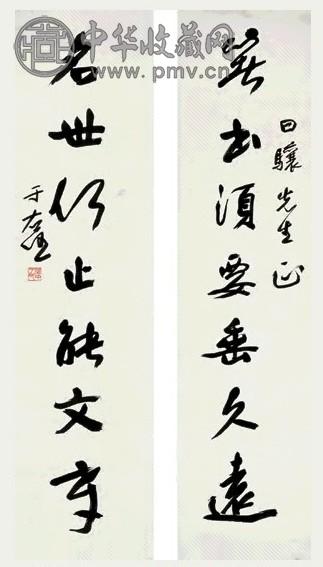 中华收藏网
www.pmv.cn
日驤先生正
著書須要垂久遠
名世何止能文章
于右任